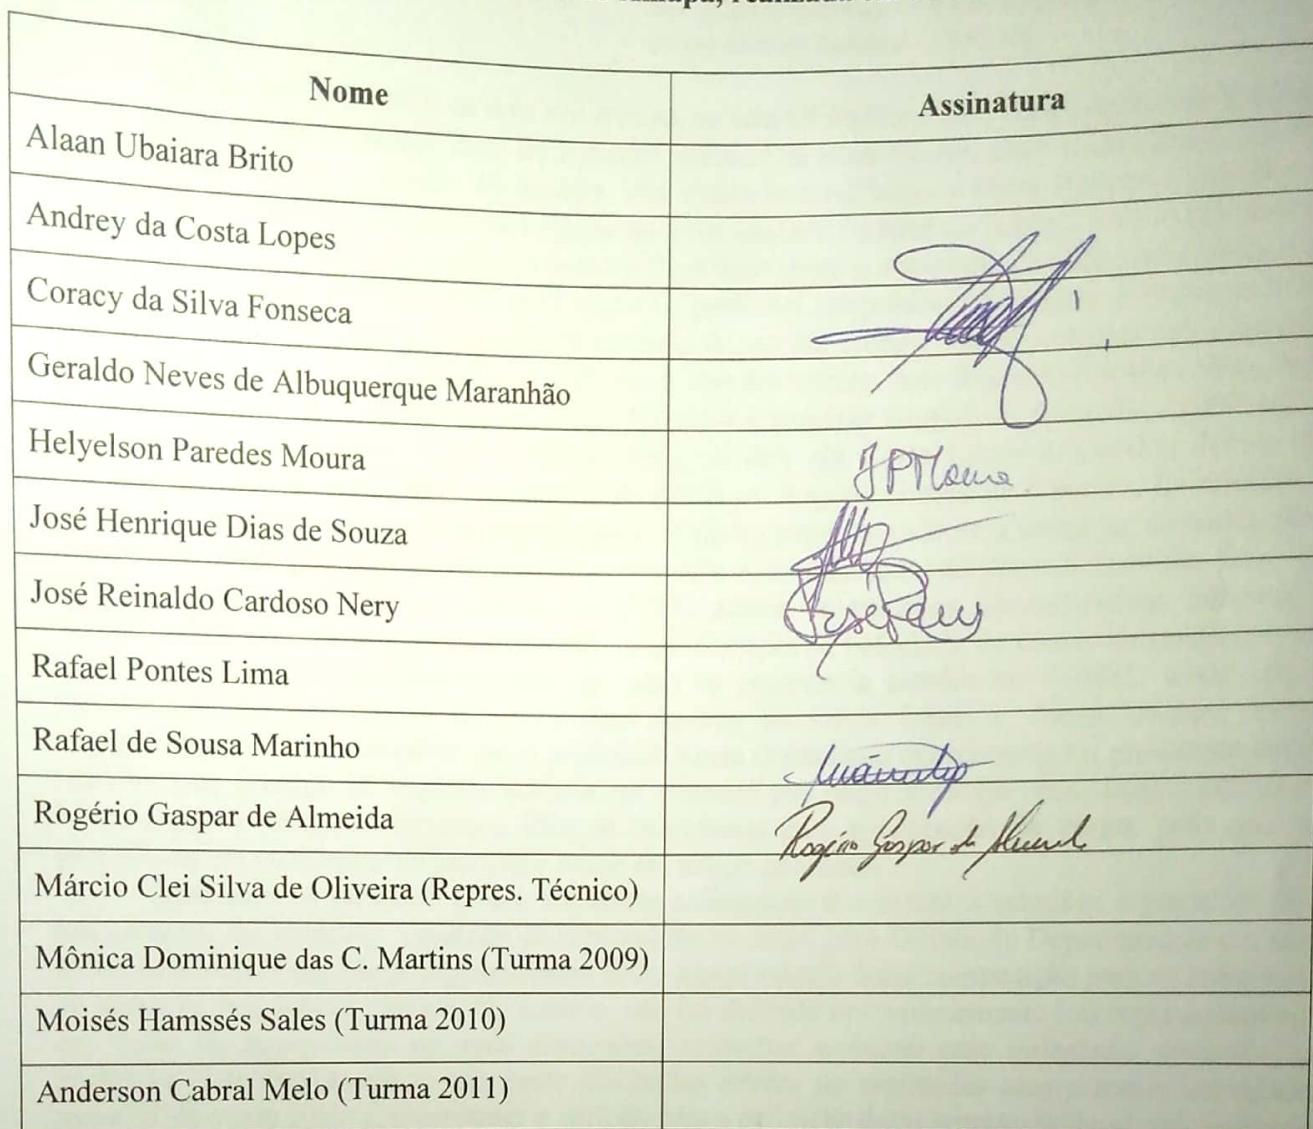 Nome Assinatura
Alaan Ubaiara Brito
Andrey da Costa Lopes
Coracy da Silva Fonseca
Geraldo Neves de Albuquerque Maranhão
Helyelson Paredes Moura
José Henrique Dias de Souza
José Reinaldo Cardoso Nery
Rafael Pontes Lima
Rafael de Sousa Marinho
Rogério Gaspar de Almeida Rogério Gaspar de Almeida
Márcio Clei Silva de Oliveira (Repres. Técnico)
Mônica Dominique das C. Martins (Turma 2009)
Moisés Hamssés Sales (Turma 2010)
Anderson Cabral Melo (Turma 2011)